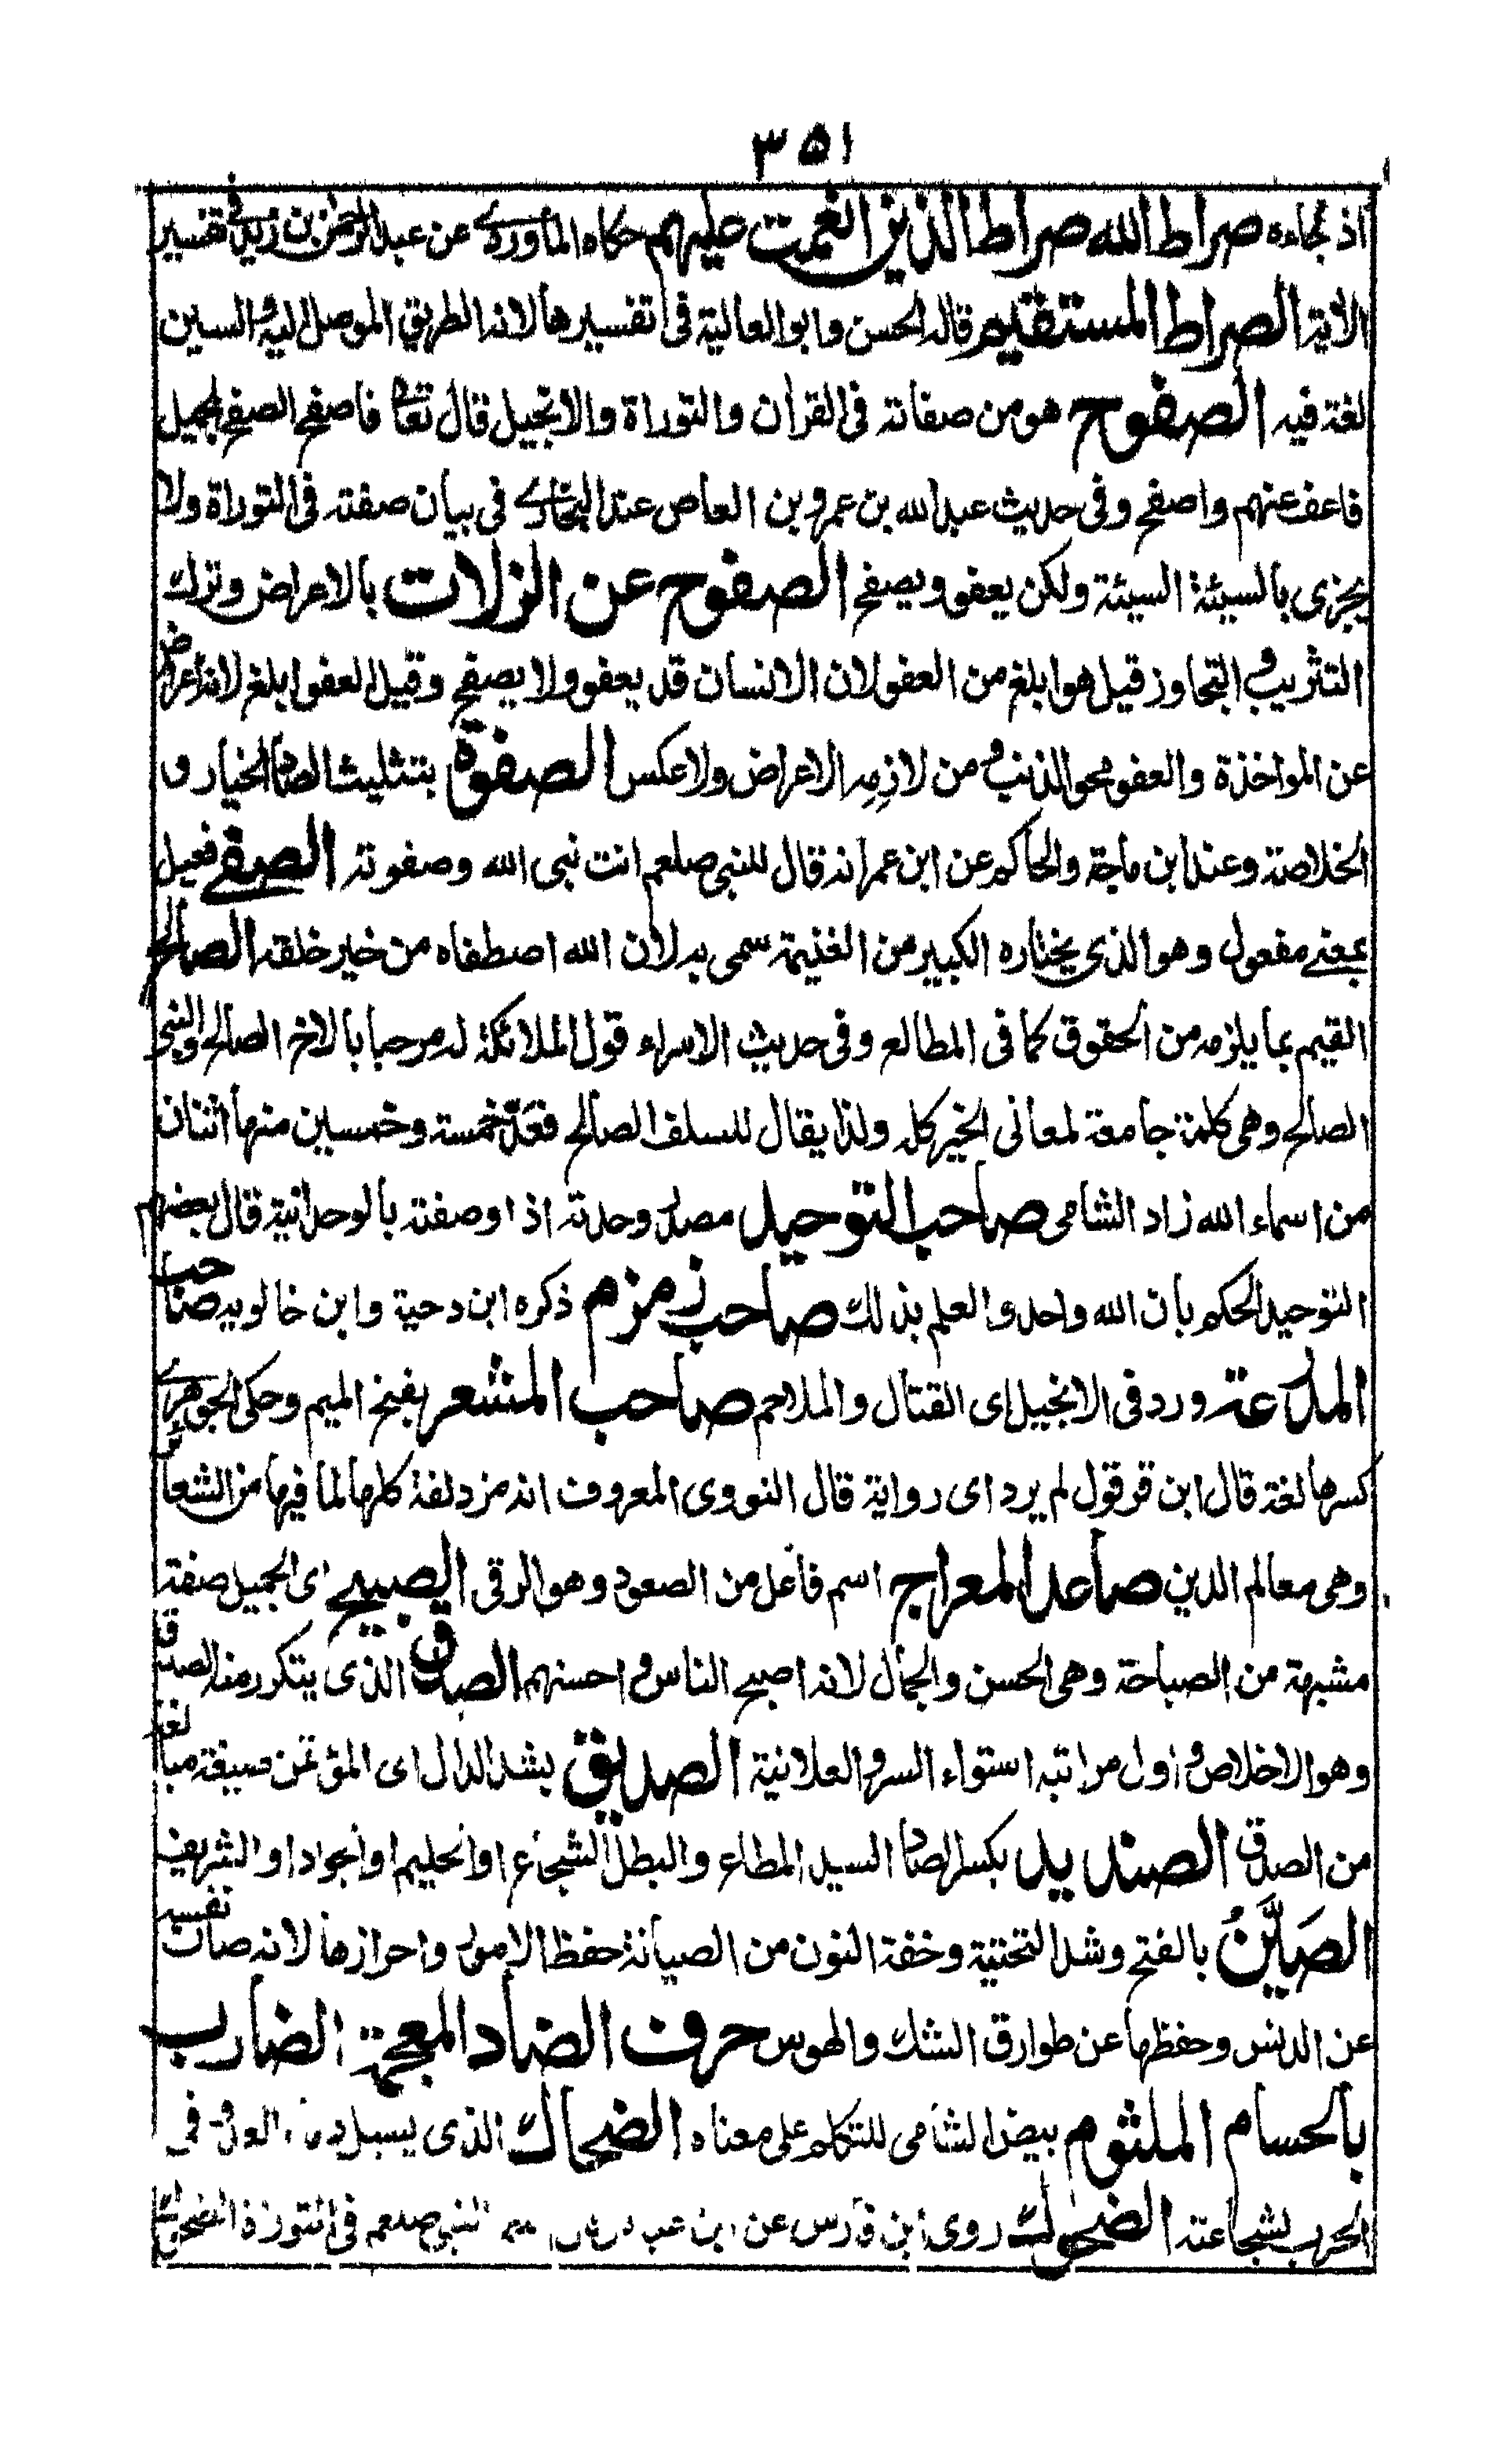 ٣٥١
اذ نجاءه صراط الله صراط الذين انعمت عليهم حكاه الماوردي عن عبد الرحمن بن زيد في تفسير
الاية الصراط المستقيم قاله الحسن وابو العالية في تفسيرها لانه الطريق الموصل اليه والسين
لغة فيه الصفوح هو من صفاته في القران والتوراة والانجيل قال تعالى فاصفح الصفح الجميل
فاعف عنهم واصفح وفي حديث عبد الله بن عمرو بن العاص عند البخاري في بيان صفته في التوراة ولا
يجزى بالسيئة السيئة ولكن يعفو ويصفح الصفوح عن الزلات بالاعراض وترك
التثريب والتجاوز قيل هو ابلغ من العفو لان الانسان قد يعفو ولا يصفح وقيل العفو ابلغ لانه اعراض
عن المواخذة والعفو محو الذنب ومن لازمه الاعراض ولا عكس الصفوة بتثليث الصاد الخيار و
الخلاصة وعند ابن ماجة والحاكم عن ابن عمر انه قال للنبي صلعم انت نبي الله وصفوته الصفي فعيل
بمعنى مفعول وهو الذي يختاره الكبير من الغنيمة سمى به لان الله اصطفاه من خير خلقه الصالح
القيم بما يلزمه من الحقوق كما في المطالع وفي حديث الاسراء قول الملائكة له مرحبا بالاخ الصالح والنبي
الصالح وهي كلمة جامعة لمعاني الخير كله ولذا يقال للسلف الصالح فعد خمسة وخمسين منها اثنان
من اسماء الله زاد الشامي صاحب التوحيد مصدر وحدته اذا وصفته بالوحدانية قال بعضهم
التوحيد الحكم بان الله واحد والعلم بذلك صاحب زمزم ذكره ابن دحية وابن خالويه صاحب
المدرعة ورد في الانجيل اى القتال والملاحم صاحب المشعر بفتح الميم وحكى الجوهري
كسرها لغة قال ابن قرقول لم يرد اى رواية قال النووي المعروف انه مزدلفة كلها لما فيها من الشعائر
وهي معالم الدين صاعد المعراج اسم فاعل من الصعود وهو الرقى الصبيح اى الجميل صفة
مشبهة من الصباحة وهي الحسن والجمال لانه اصبح الناس واحسنهم الصدوق الذي يتكرر منه الصدق
وهو الاخلاص واول مراتبه استواء السر والعلانية الصديق بشد الدال اى المؤتمن صيغة مبالغة
من الصدق الصنديد بكسر الصاد السيد المطاع والبطل الشجاع او الحليم او الجواد او الشريف
الصَيّنُ بالفتح وشد التحتية وخفة النون من الصيانة حفظ الامور واحرازها لانه صان نفسه
عن الدنس وحفظها عن طوارق الشك والهوس حرف الضاد المعجمة الضارب
بالحسام الملثوم بيض الشامي للتكلم على معناه الضحاك الذي يسيل العدو في
الحرب لشجاعته الضحوك روى ابن فارس عن ابن عباس النبي صلعم في التوراة الضحوك